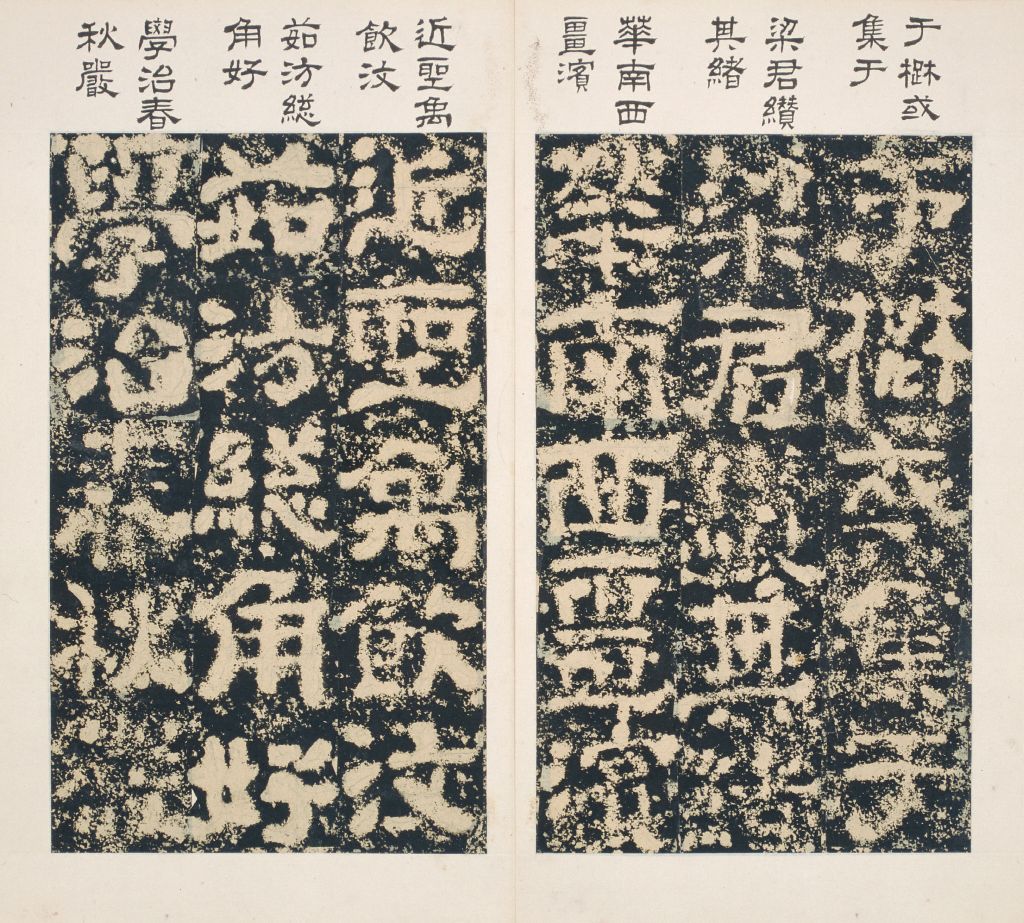 于或
集于
梁君纘
其緒
華南西
畺濱
近聖禹
飲汶
茹汸緫
角好
學治春
秋嚴
于或集于
梁君纘其緒
華南西畺濱
近聖禹飲汶
茹汸緫角好
學治春秋嚴